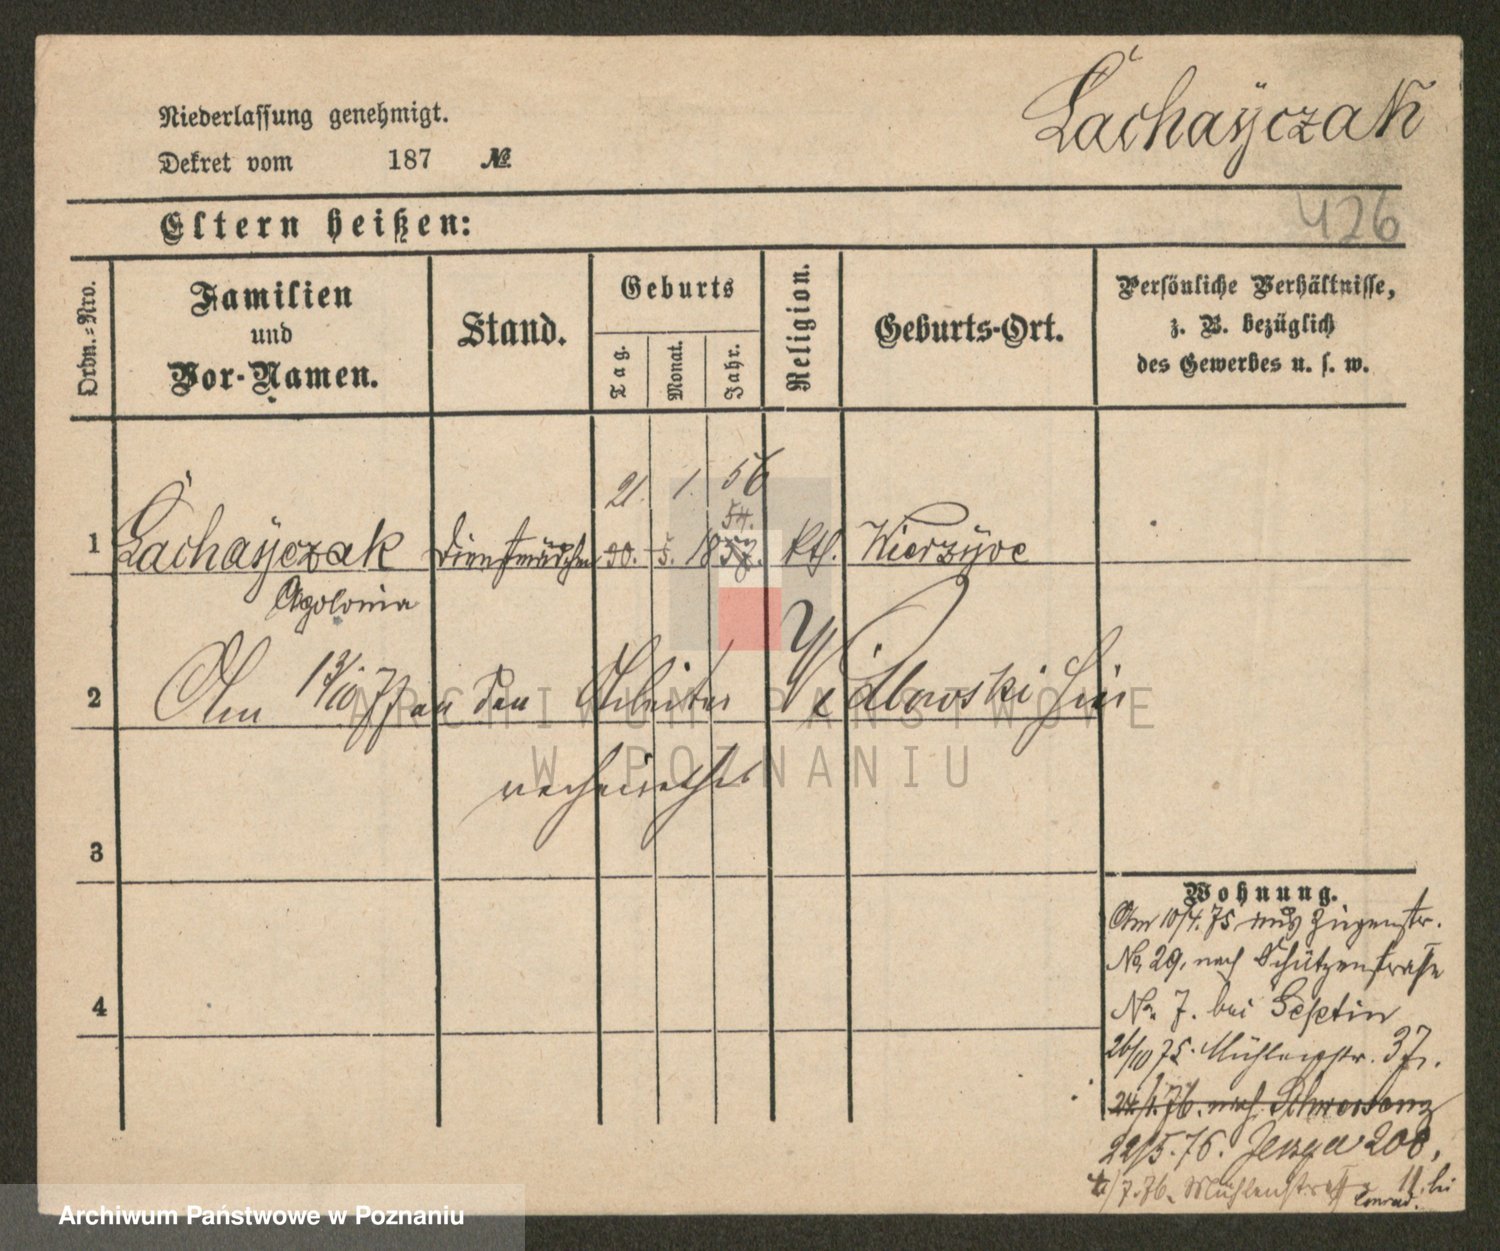 Niederlassung genehmigt.
Dekret vom 187 №
Lachaÿczak
426
Eltern heißen:
Ordn.=Nro.
Familien
und
Vor-Namen.
Stand.
Geburts
Tag.
Monat.
Jahr.
Religion.
Geburts-Ort.
Persönliche Verhältnisse,
z. B. bezüglich
des Gewerbes u. s. w.
21. 1. 56
54.
1 Lachaÿczak Dienstmädchen 30. 5. 1857. Kth. Wierzÿce
Apolonia
2 Am 13/10 77 an den Arbeiter Vidlowski hier
verheirathet
3
4
Wohnung.
Am 10/4. 75 aus Ziegenstr.
No. 29. nach Schützenstraße
No. 7. bei Septin
26/10 75. Mühlenstr. 37.
24/1. 76. nach Schwersenz
22/5. 76. Jerzyce 200.
/7. 76. Mühlenstraße 11. bei
Conrad.
ARCHIWUM PAŃSTWOWE
W POZNANIU
Archiwum Państwowe w Poznaniu